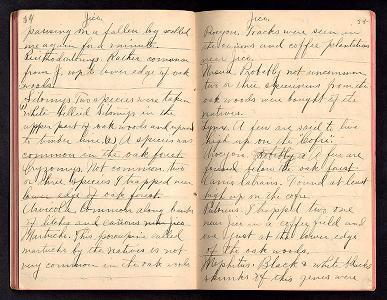 34 Jico.
pausing on a fallen log scolded
me again for a minute.
Reithrodontomys. Rather common
from J. up to lower edge of oak
woods.
Sitomys two species were taken
"white bellied Sitomys in the
upper part of oak woods and upward
to timber line. (2) A species was
common in the oak forest
Oryzomys. Not common, two
or three species I trapped near
lower edge of oak forest.
Common along banks
of ditches and cañons near Jico.
This porcupine called
by the natives is not
very common in the oak woods
Jico. 35
Procyon. Tracks were seen in
the cañons and coffee plantations
near Jico.
Nasua. Probably not uncommon
two or three specimens from the
oak woods were bought of the
natives.
Lynx. A few are said to live
high up on the "Cofre".
A few are
found below the oak forest
Canis latrans. Found at least
high up on the cofre
I trapped two one
near Jico in a coffee field and
one just at the lower edge
of the oak woods.
Mephitis. Black & white
skunks of this genus were